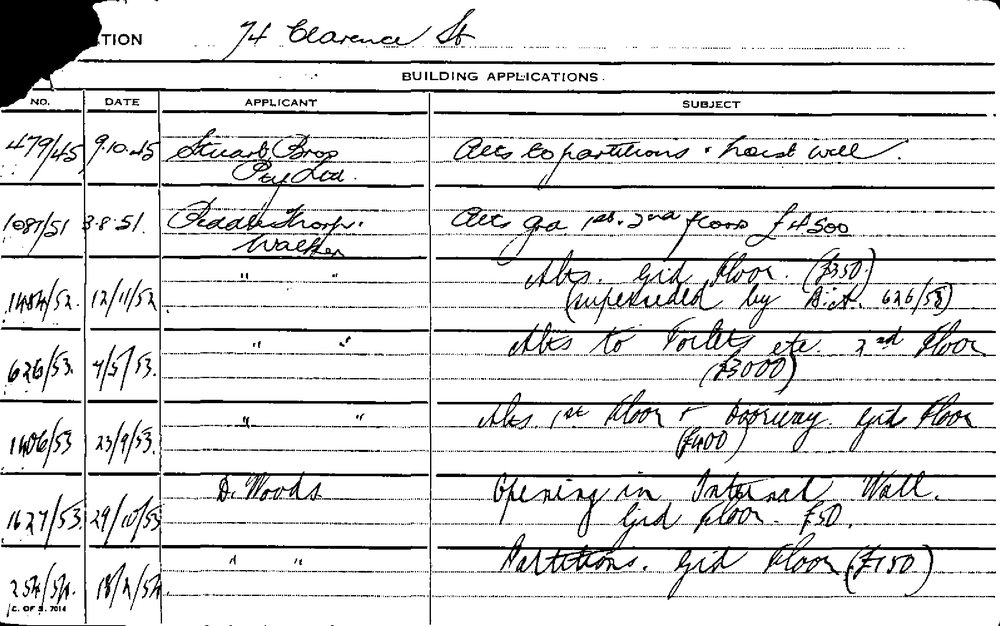 TION 74 Clarence St
BUILDING APPLICATIONS.
NO. DATE APPLICANT SUBJECT
479/45 9.10.45 Stuart Bros Alts to partitions & hoist well.
Pty Ltd.
1087/51 3.8.51. Peddle Thorp. Alts grd 1st. 2nd floors £4500
Walker
" " Alts. Grd Floor. (£350.)
1484/52. 12/11/52 (superseded by B.A. 626/53)
" " Alts to Toilets etc. 2nd Floor
626/53. 4/5/53. (£3000)
" " Alts. 1st Floor & Doorway. Grd Floor
1406/53 23/9/53. (£400)
D. Woods Opening in Internal Wall.
1627/53. 29/10/53 Grd Floor. £50.
" " Partitions. Grd Floor (£150)
254/54. 18/2/54.
C. OF S. 7014